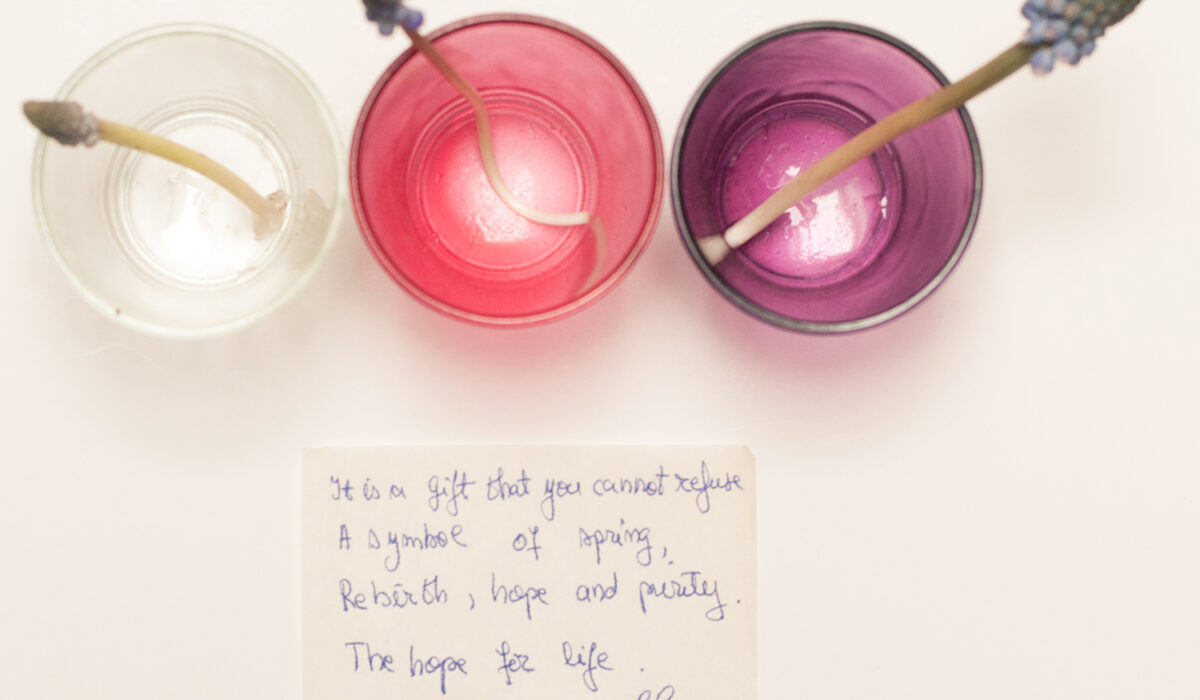 It is a gift that you cannot refuse
A symbol of spring,
Rebirth, hope and purity.
The hope for life.